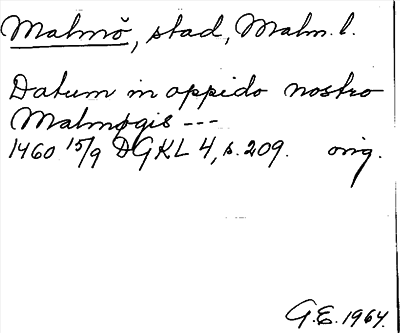 Malmö, stad, Malm. l.
Datum in oppido nostro
Malmøgis ---
1460 15/9 DGKL 4, s. 209. orig.
G.E. 1964.